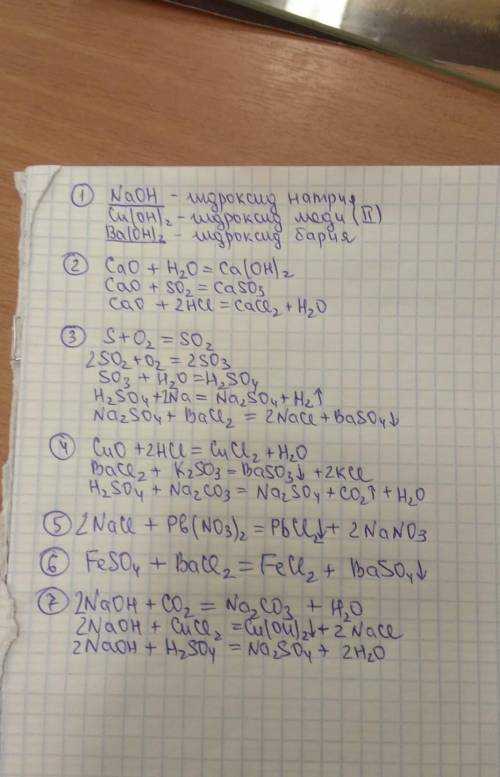 ① NaOH - гидроксид натрия
Cu(OH)₂ - гидроксид меди (II)
Ba(OH)₂ - гидроксид бария
② CaO + H₂O = Ca(OH)₂
CaO + SO₂ = CaSO₃
CaO + 2HCl = CaCl₂ + H₂O
③ S + O₂ = SO₂
2SO₂ + O₂ = 2SO₃
SO₃ + H₂O = H₂SO₄
H₂SO₄ + 2Na = Na₂SO₄ + H₂↑
Na₂SO₄ + BaCl₂ = 2NaCl + BaSO₄↓
④ CuO + 2HCl = CuCl₂ + H₂O
BaCl₂ + K₂SO₃ = BaSO₃↓ + 2KCl
H₂SO₄ + Na₂CO₃ = Na₂SO₄ + CO₂↑ + H₂O
⑤ 2NaCl + Pb(NO₃)₂ = PbCl₂↓ + 2NaNO₃
⑥ FeSO₄ + BaCl₂ = FeCl₂ + BaSO₄↓
⑦ 2NaOH + CO₂ = Na₂CO₃ + H₂O
2NaOH + CuCl₂ = Cu(OH)₂↓ + 2NaCl
2NaOH + H₂SO₄ = Na₂SO₄ + 2H₂O